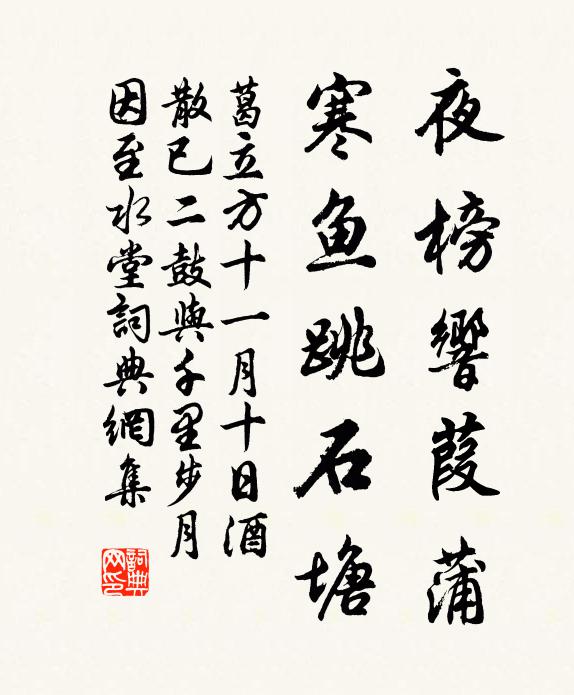 夜榜響葭蒲
寒鱼跳石塘
葛立方十一月十日酒
散已二鼓與千里步月
因至水堂詞典網集
詞典
网印